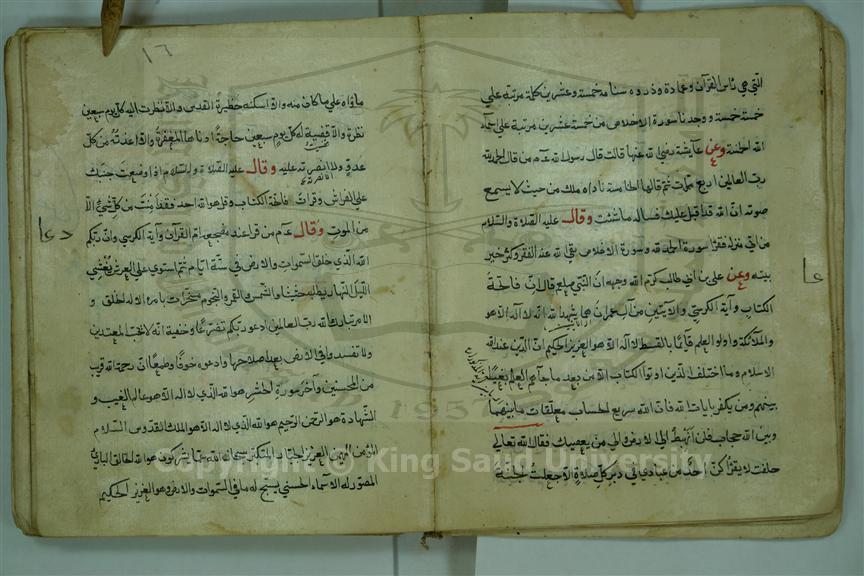 التي هي رأس القرآن وعماده وذروة سنامه خمسة وعشرين كلمة مرتبة علي
خمسة خمسة ووجدنا سورة الاخلاص من خمسة عشرين مرتبة علي
الله الجنة وعن عايشة رضي الله عنها قالت قال رسول الله ع م من قال الحمد لله
رب العالمين اربع مرات ثم قالها الخامسة ناداه ملك من حيث لا يسمع
صوته ان الله قد اقبل عليك فساله ما شئت وقال عليه الصلاة والسلام
من اتي منزله فقرأ سورة الحمد لله وسورة الاخلاص نفي الله عنه الفقر وكثر خير
بيته وعن علي بن ابي طالب كرم الله وجهه ان النبي صلعم قال ان فاتحة
الكتاب وآية الكرسي والآيتين من آل عمران هما شهد الله انه لا اله الا هو
والملائكة واولوا العلم قائما بالقسط لا اله الا هو العزيز الحكيم ان الدين عند الله
الاسلام وما اختلف الذين اوتوا الكتاب الا من بعد ما جاءهم العلم بغيا
بينهم ومن يكفر بايات الله فان الله سريع الحساب معلقات ما بينهما
وبين الله حجاب قلن الي من يعصيك فقال الله تعالي
حلفت لا يقرأكن احد من عبادي في دبر كل صلاة الا جعلت الجنة
١٦
مأواه علي ما كان منه والا اسكنته حظيرة القدس والا نظرت اليه كل يوم سبعين
نظرة والا قضيت له كل يوم سبعين حاجة ادناها المغفرة والا اعذته من كل
عدو ولا نصرته عليه وقال عليه الصلاة والسلام اذا وضعت جنبك
علي الفراش وقرأت فاتحة الكتاب وقل هو الله احد فقد امنت من كل شيء الا
من الموت وقال ع م من قرأ عند مضجعه ام القرآن وآية الكرسي وان ربكم
الله الذي خلق السموات والارض في ستة ايام ثم استوي علي العرش يغشي
الليل النهار يطلبه حثيثا والشمس والقمر والنجوم مسخرات بامره الا له الخلق و
الامر تبارك الله رب العالمين ادعوا ربكم تضرعا وخفية انه لا يحب المعتدين
ولا تفسدوا في الارض بعد اصلاحها وادعوه خوفا وطمعا ان رحمة الله قريب
من المحسنين وآخر سورة الحشر هو الله الذي لا اله الا هو عالم الغيب و
الشهادة هو الرحمن الرحيم هو الله الذي لا اله الا هو الملك القدوس السلام
المؤمن المهيمن العزيز الجبار المتكبر سبحان الله عما يشركون هو الله الخالق البارئ
المصور له الاسماء الحسني يسبح له ما في السموات والارض وهو العزيز الحكيم
دعا
Copyright © King Saud University
1957